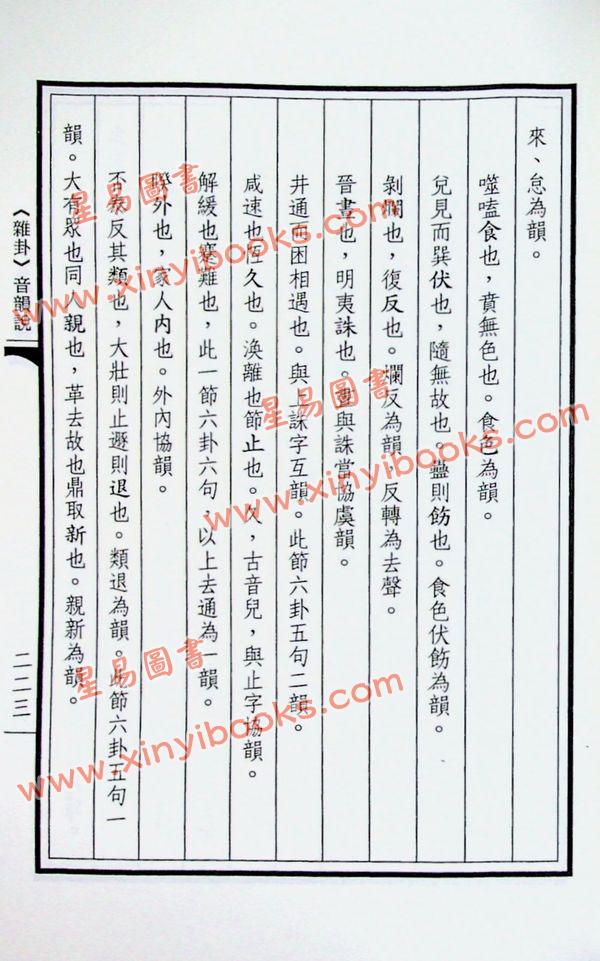 來、怠為韻。
噬嗑食也，賁無色也。食色為韻。
兌見而巽伏也，隨無故也。蠱則飭也。食色伏飭為韻。
剝爛也，復反也。爛反為韻，反轉為去聲。
晉晝也，明夷誅也。晝與誅當協虞韻。
井通而困相遇也。與上誅字互韻。此節六卦五句二韻。
咸速也恆久也。渙離也節止也。久，古音兒，與止字協韻。
解緩也蹇難也，此一節六卦六句，以上去通為一韻。
睽外也，家人內也。外內協韻。
否泰反其類也，大壯則止遯則退也。類退為韻。此節六卦五句一
韻。大有眾也同人親也，革去故也鼎取新也。親新為韻。
〈雜卦〉音韻說
二二三
星易圖書
www.xinyibooks.com
星易圖書
www.xinyibooks.com
星易圖書
www.xinyibooks.com